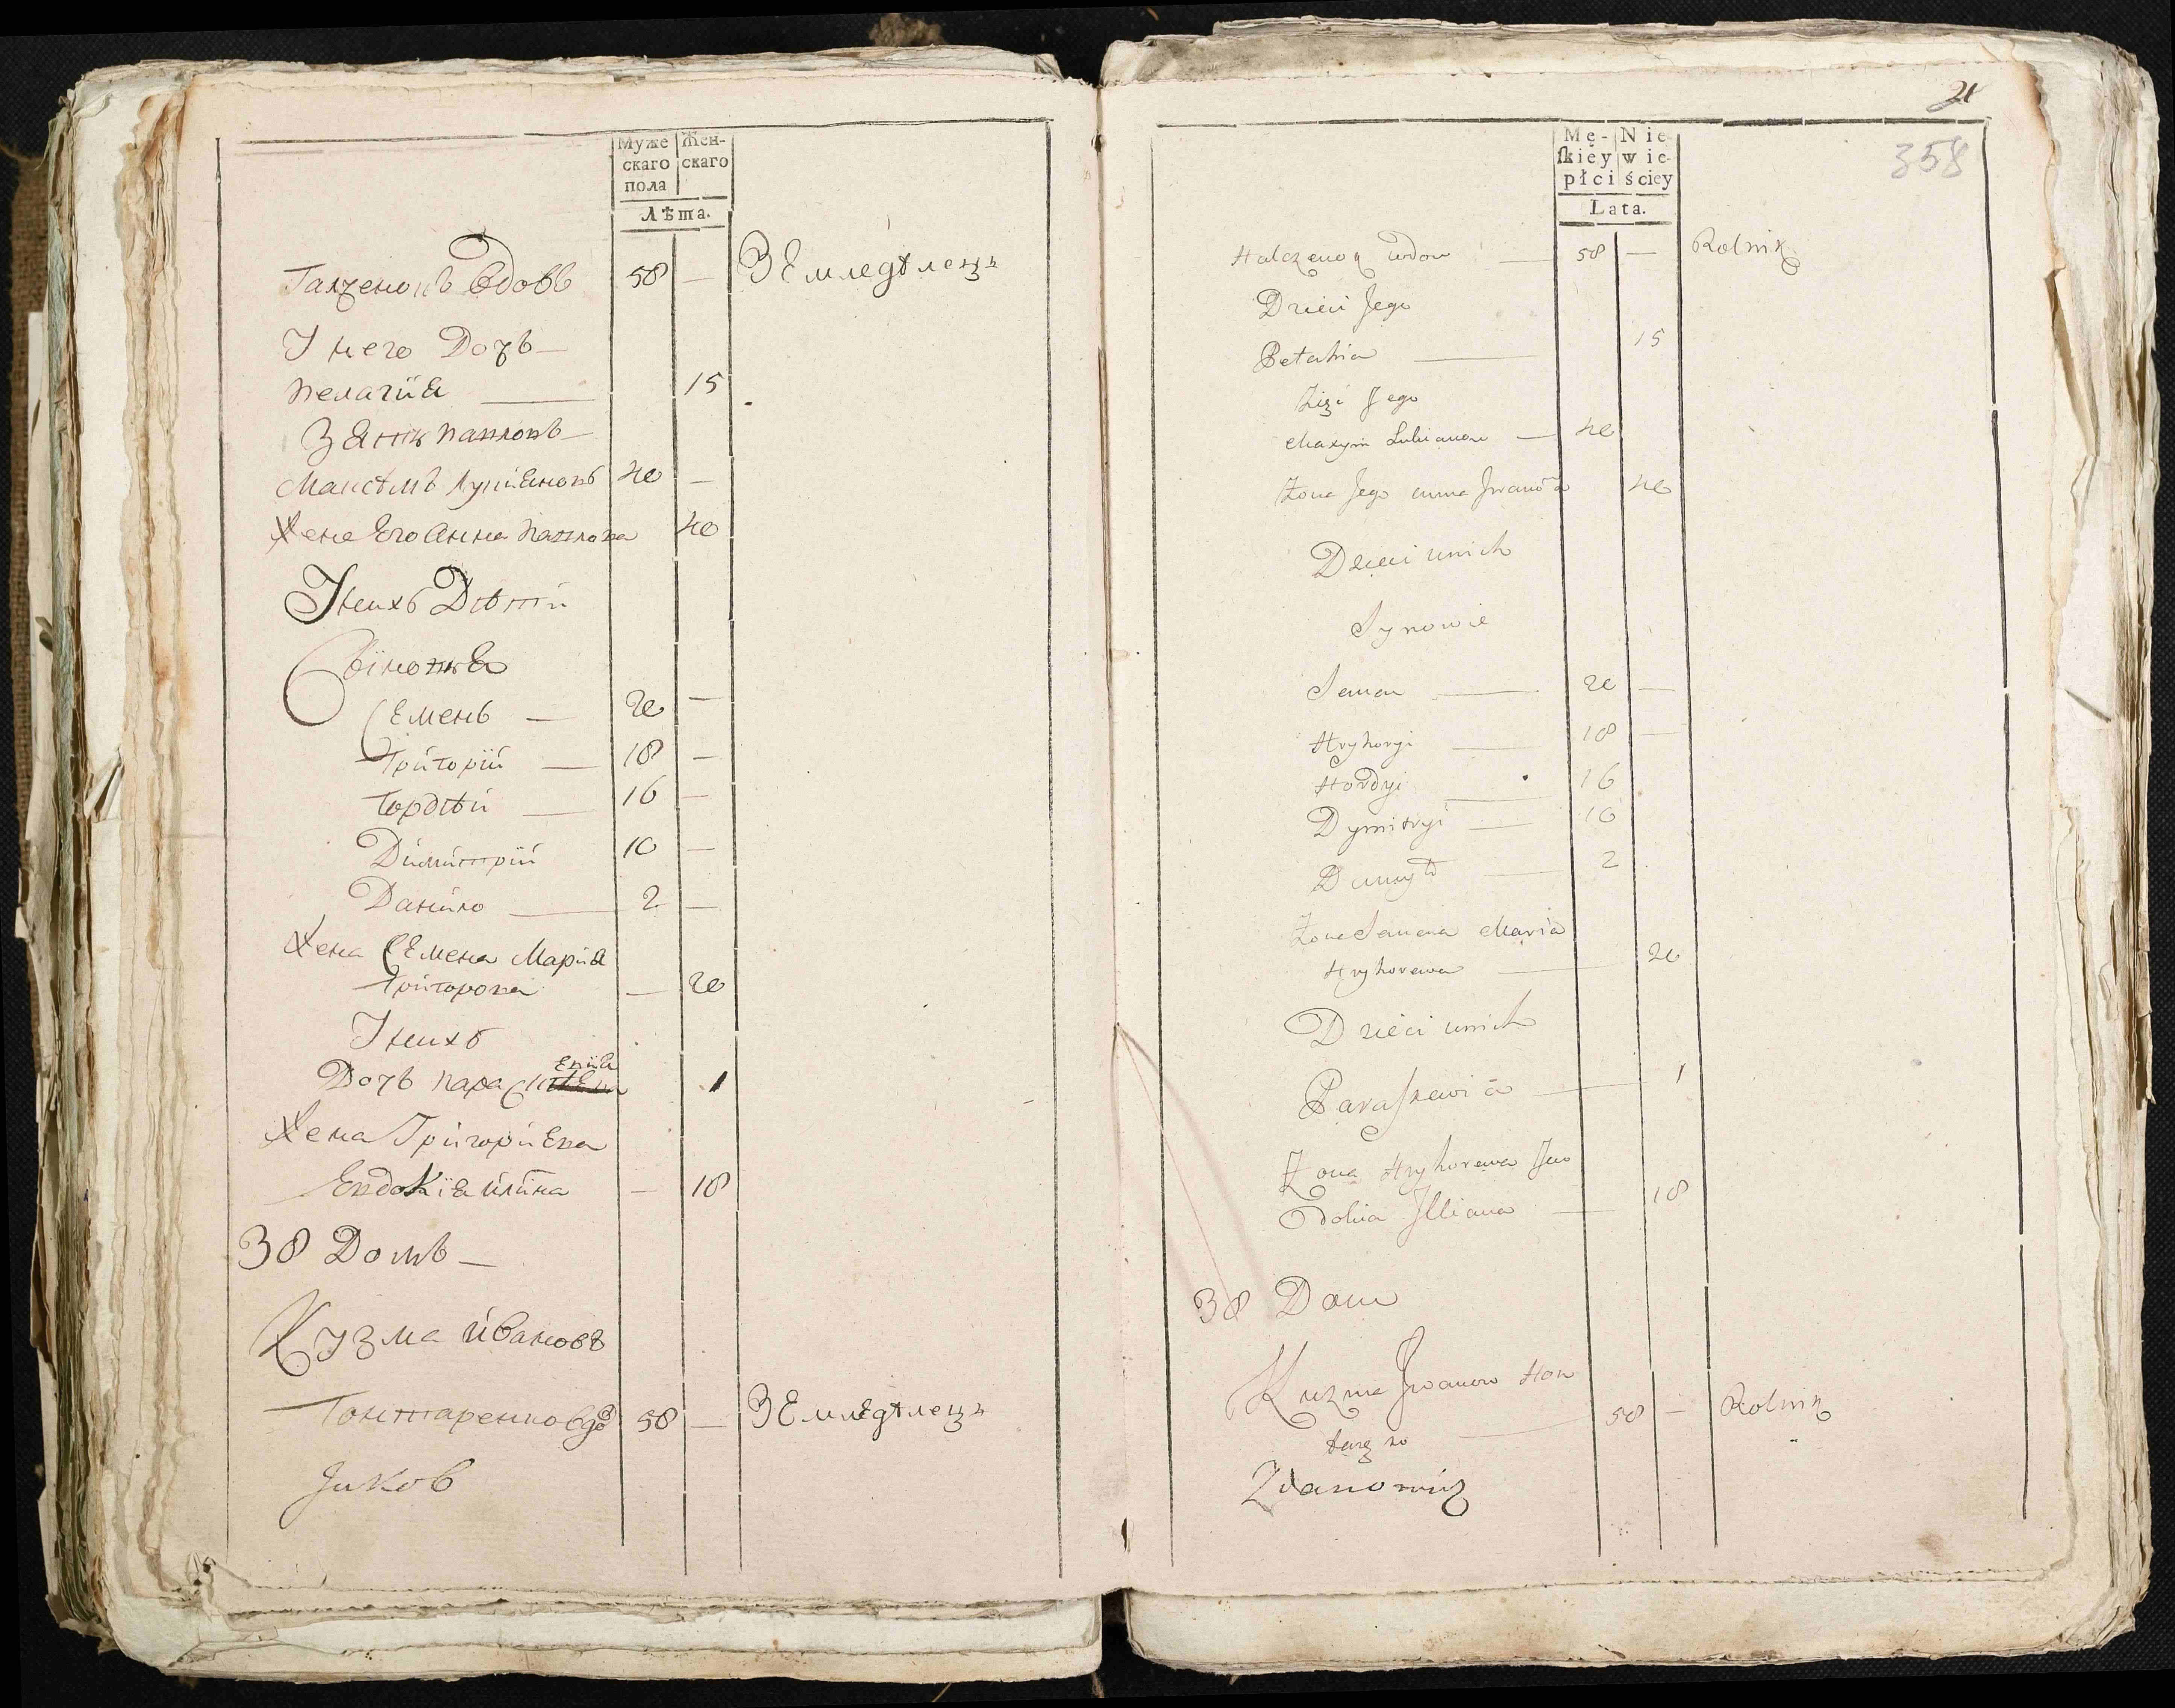 Муже
скаго
пола
Жен-
скаго
Лѣта.
Галченокъ вдовъ 58 — Земледѣлецъ
У него Дочь —
Пелагия — 15
Зять Павловъ —
Максимъ Лукияновъ 40 —
Жена Его Анна Павлова 40
У нихъ Дѣти
Синовья
Семенъ — 20 —
Григорий — 18 —
Гордѣй — 16 —
Димитрий 10 —
Данило — 2 —
Жена Семена Мария
Григорова — 20
У нихъ
евия
Дочь Параск 1
Жена Григориева
Евдокия илина — 18
38 Домъ —
Кузма ивановъ
Гонтаренко вдо 58 — Земледѣлецъ
Јаков
21
358
Mę-
skiey
płci
Nie
wie-
ściey
Lata.
Halczenok wdow — 58 — Rolnik
Dzieci Jego
Pelahia — 15
Zięć Jego
Maxym Lukianow — 40
Zona Jego anna Jwanowa 40
Dzieci unich
Synowie
Semen — 20 —
Hryhoryi — 18 —
Hordyi — 16
Dymitryi — 10
Danyło — 2
Zona Semena Maria
Hryhorewa — 20
Dzieci unich
Paraskewia — 1
Zona Hryhorewa Jew
dokia Jlliana — 18
38 Dom
Kuzma Jwanow Hon
tarenko — 58 — Rolnik
Zdanowicz